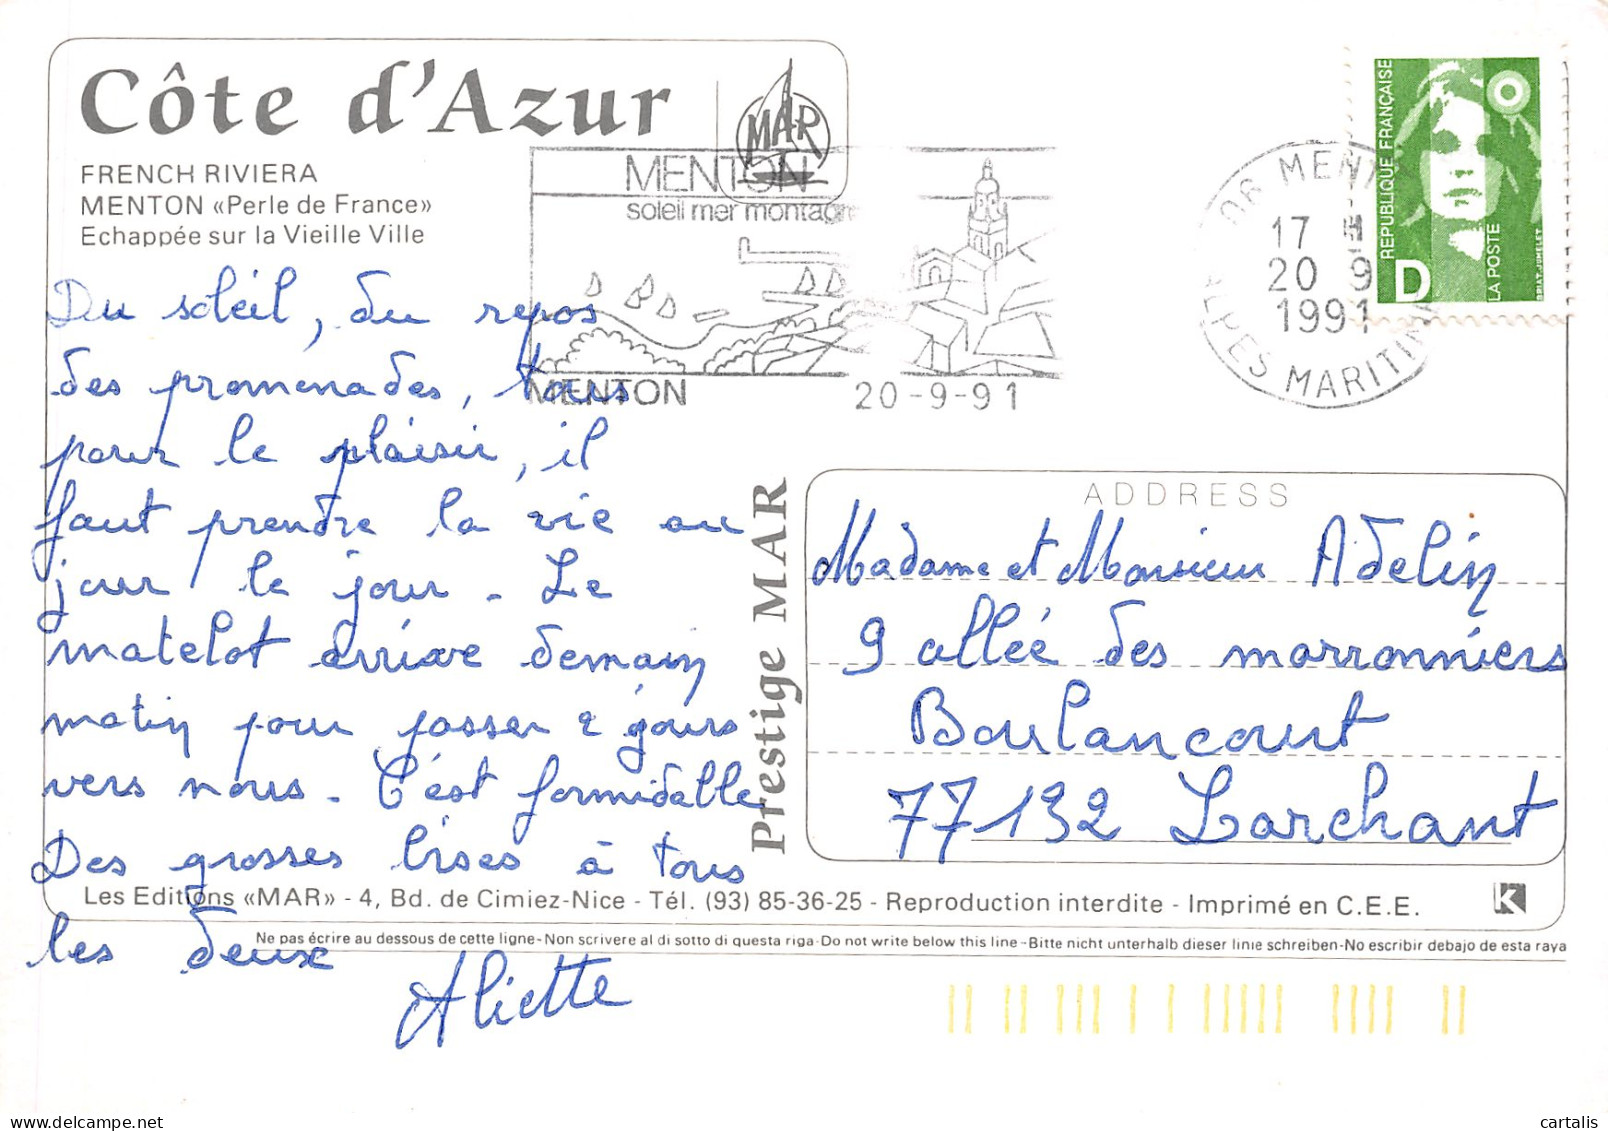 Côte d'Azur
MAR
FRENCH RIVIERA
MENTON «Perle de France»
Echappée sur la Vieille Ville
MENTON
soleil mer montagne
MENTON 20-9-91
06 MENTON
17 H
20 9
1991
ALPES MARITIMES
REPUBLIQUE FRANÇAISE
LA POSTE
D
BRIAT. JUMELET
Du soleil, du repos
des promenades, tous
pour le plaisir, il
faut prendre la vie au
jour le jour. Le
matelot arrive demain
matin pour passer 2 jours
vers nous. C'est formidable
Des grosses bises à tous
les deux
Aliette
Prestige MAR
ADDRESS
Madame et Monsieur Adelin
9 allée des marronniers
Boulancourt
77132 Larchant
Les Editions «MAR» - 4, Bd. de Cimiez-Nice - Tél. (93) 85-36-25 - Reproduction interdite - Imprimé en C.E.E.
K
Ne pas écrire au dessous de cette ligne-Non scrivere al di sotto di questa riga-Do not write below this line-Bitte nicht unterhalb dieser linie schreiben-No escribir debajo de esta raya
© cartalis | delcampe.net